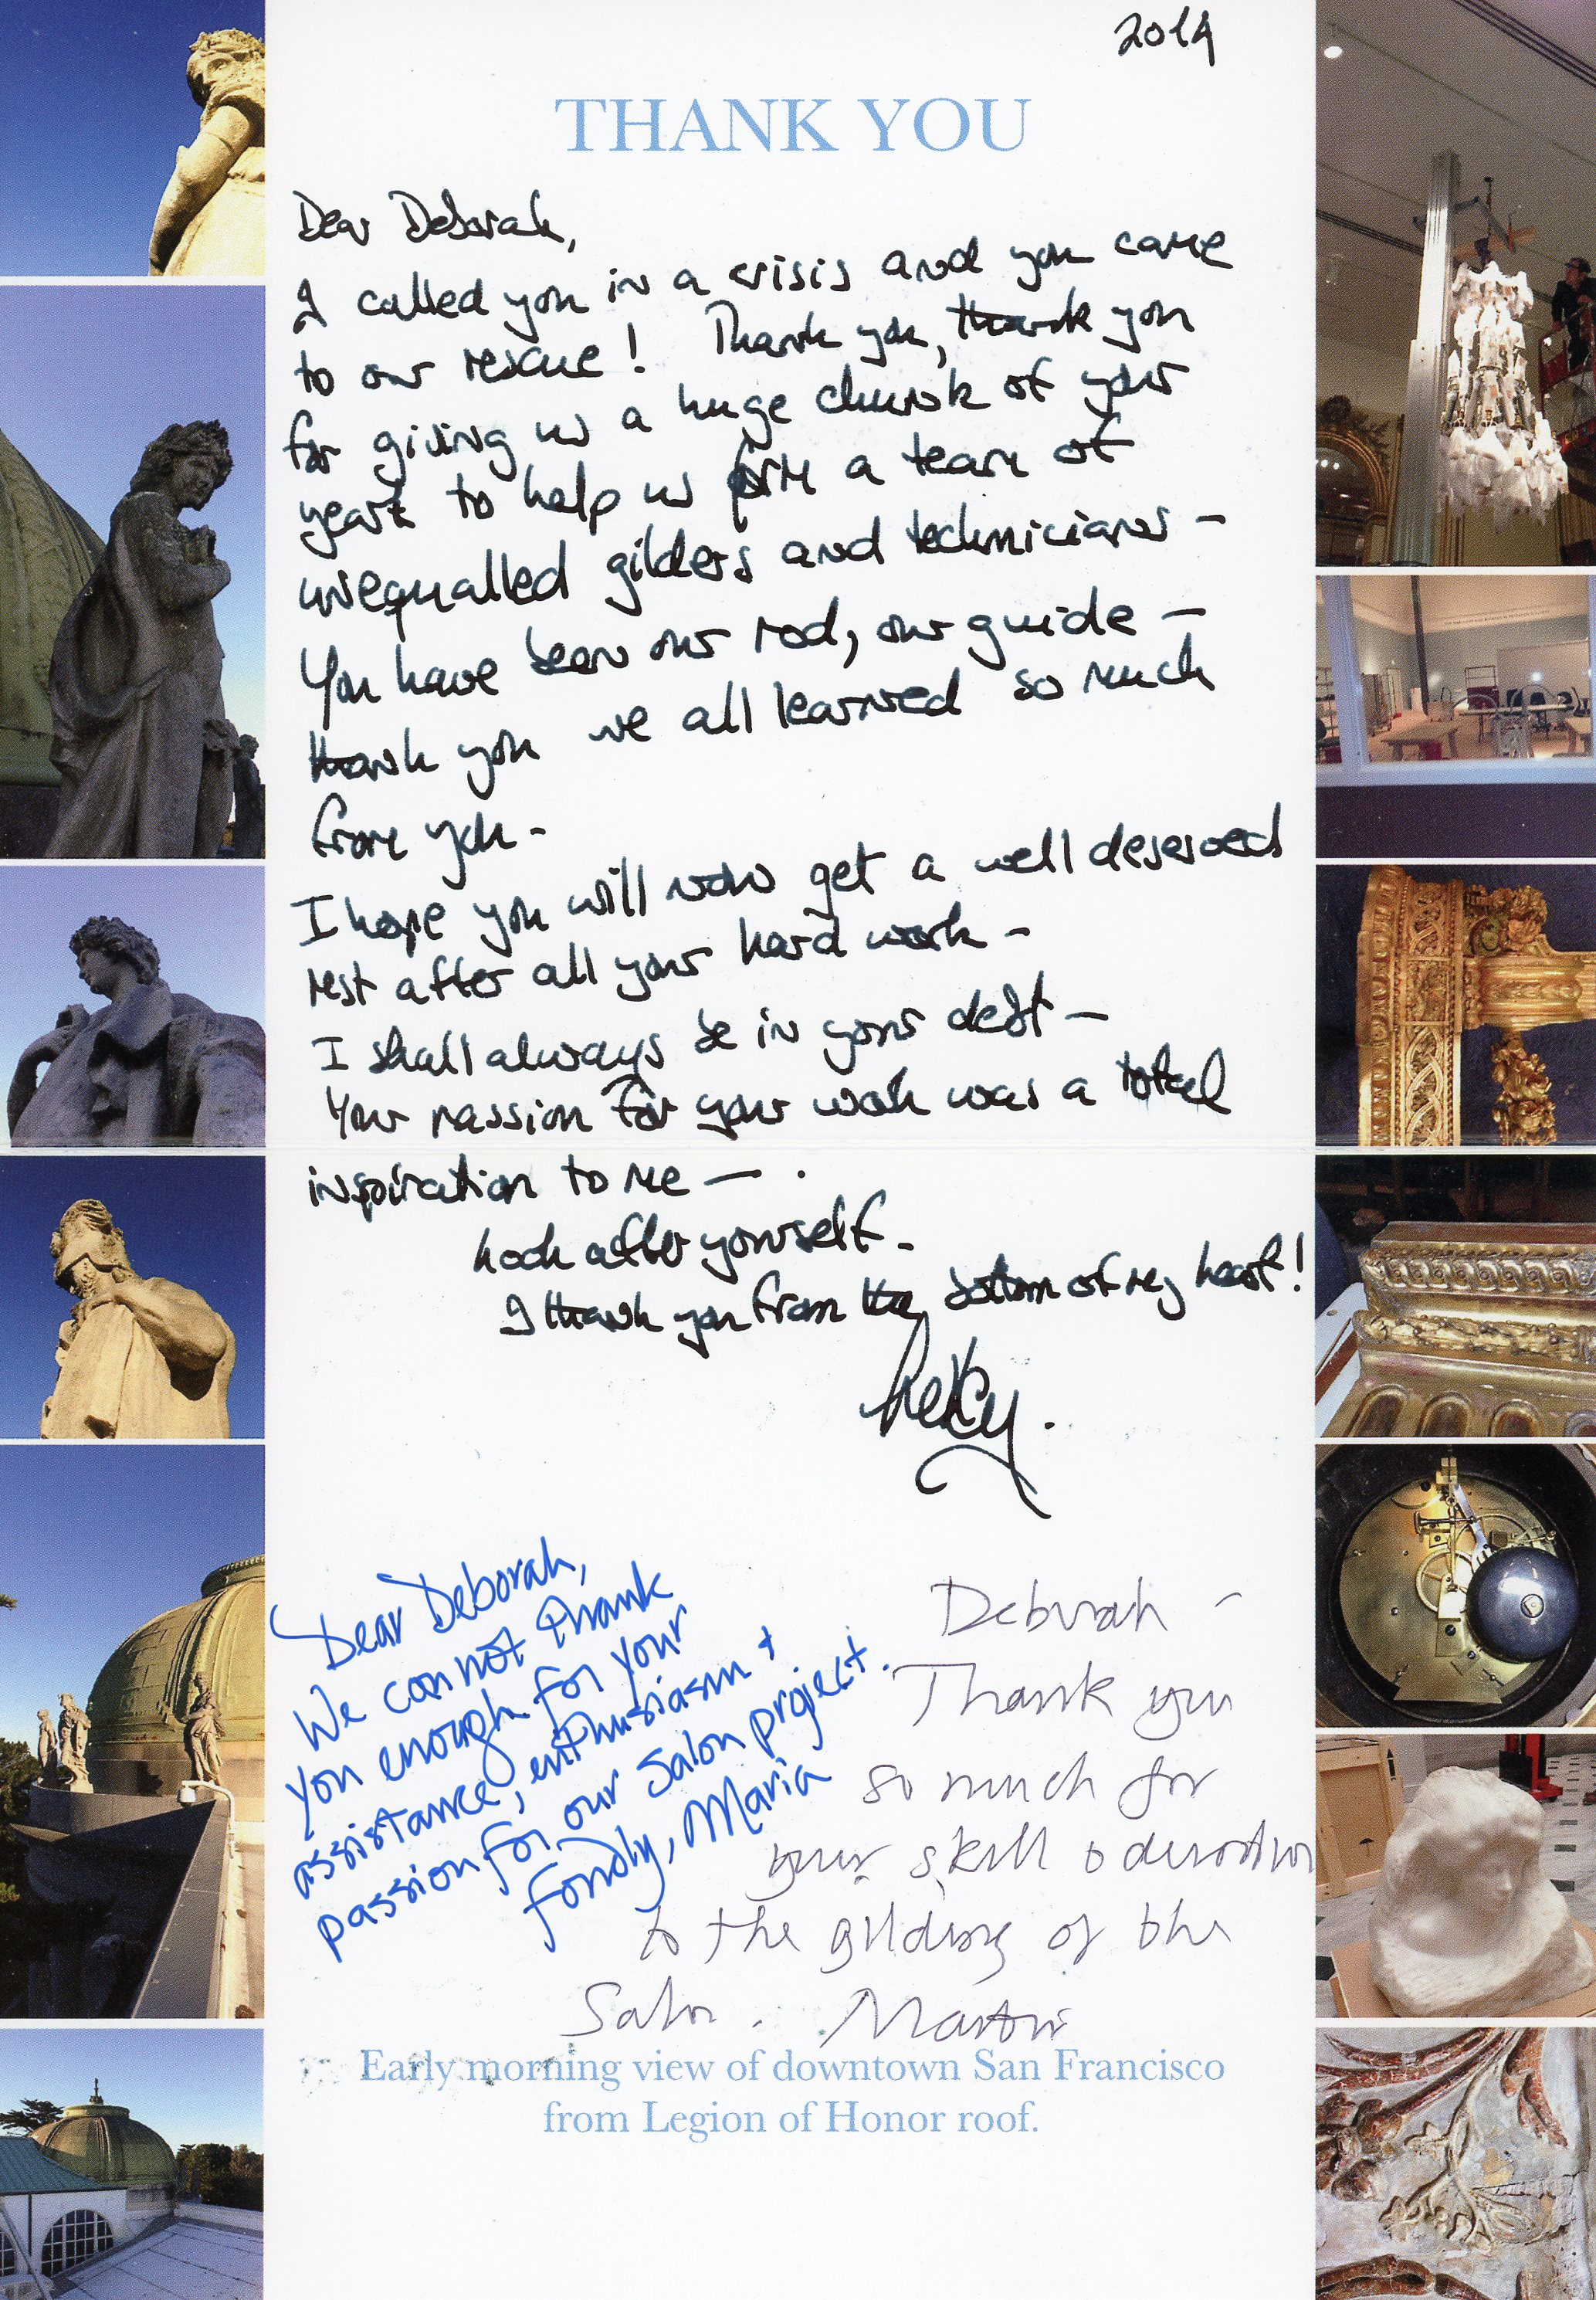 2014
THANK YOU
Dear Deborah,
I called you in a crisis and you came
to our rescue! Thank you, thank you
for giving us a huge chunk of your
year to help us form a team of
unequalled gilders and technicians -
You have been our rod, our guide -
thank you we all learned so much
from you -
I hope you will now get a well deserved
rest after all your hard work -
I shall always be in your debt -
Your passion for your work was a total
inspiration to me - .
Look after yourself -
I thank you from the bottom of my heart!
Dear Deborah,
We can not thank
you enough for your
assistance, enthusiasm +
passion for our Salon project.
Fondly, Maria
Deborah -
Thank you
so much for
your skill & devotion
to the gilding of the
Salon. Martin
Early morning view of downtown San Francisco
from Legion of Honor roof.